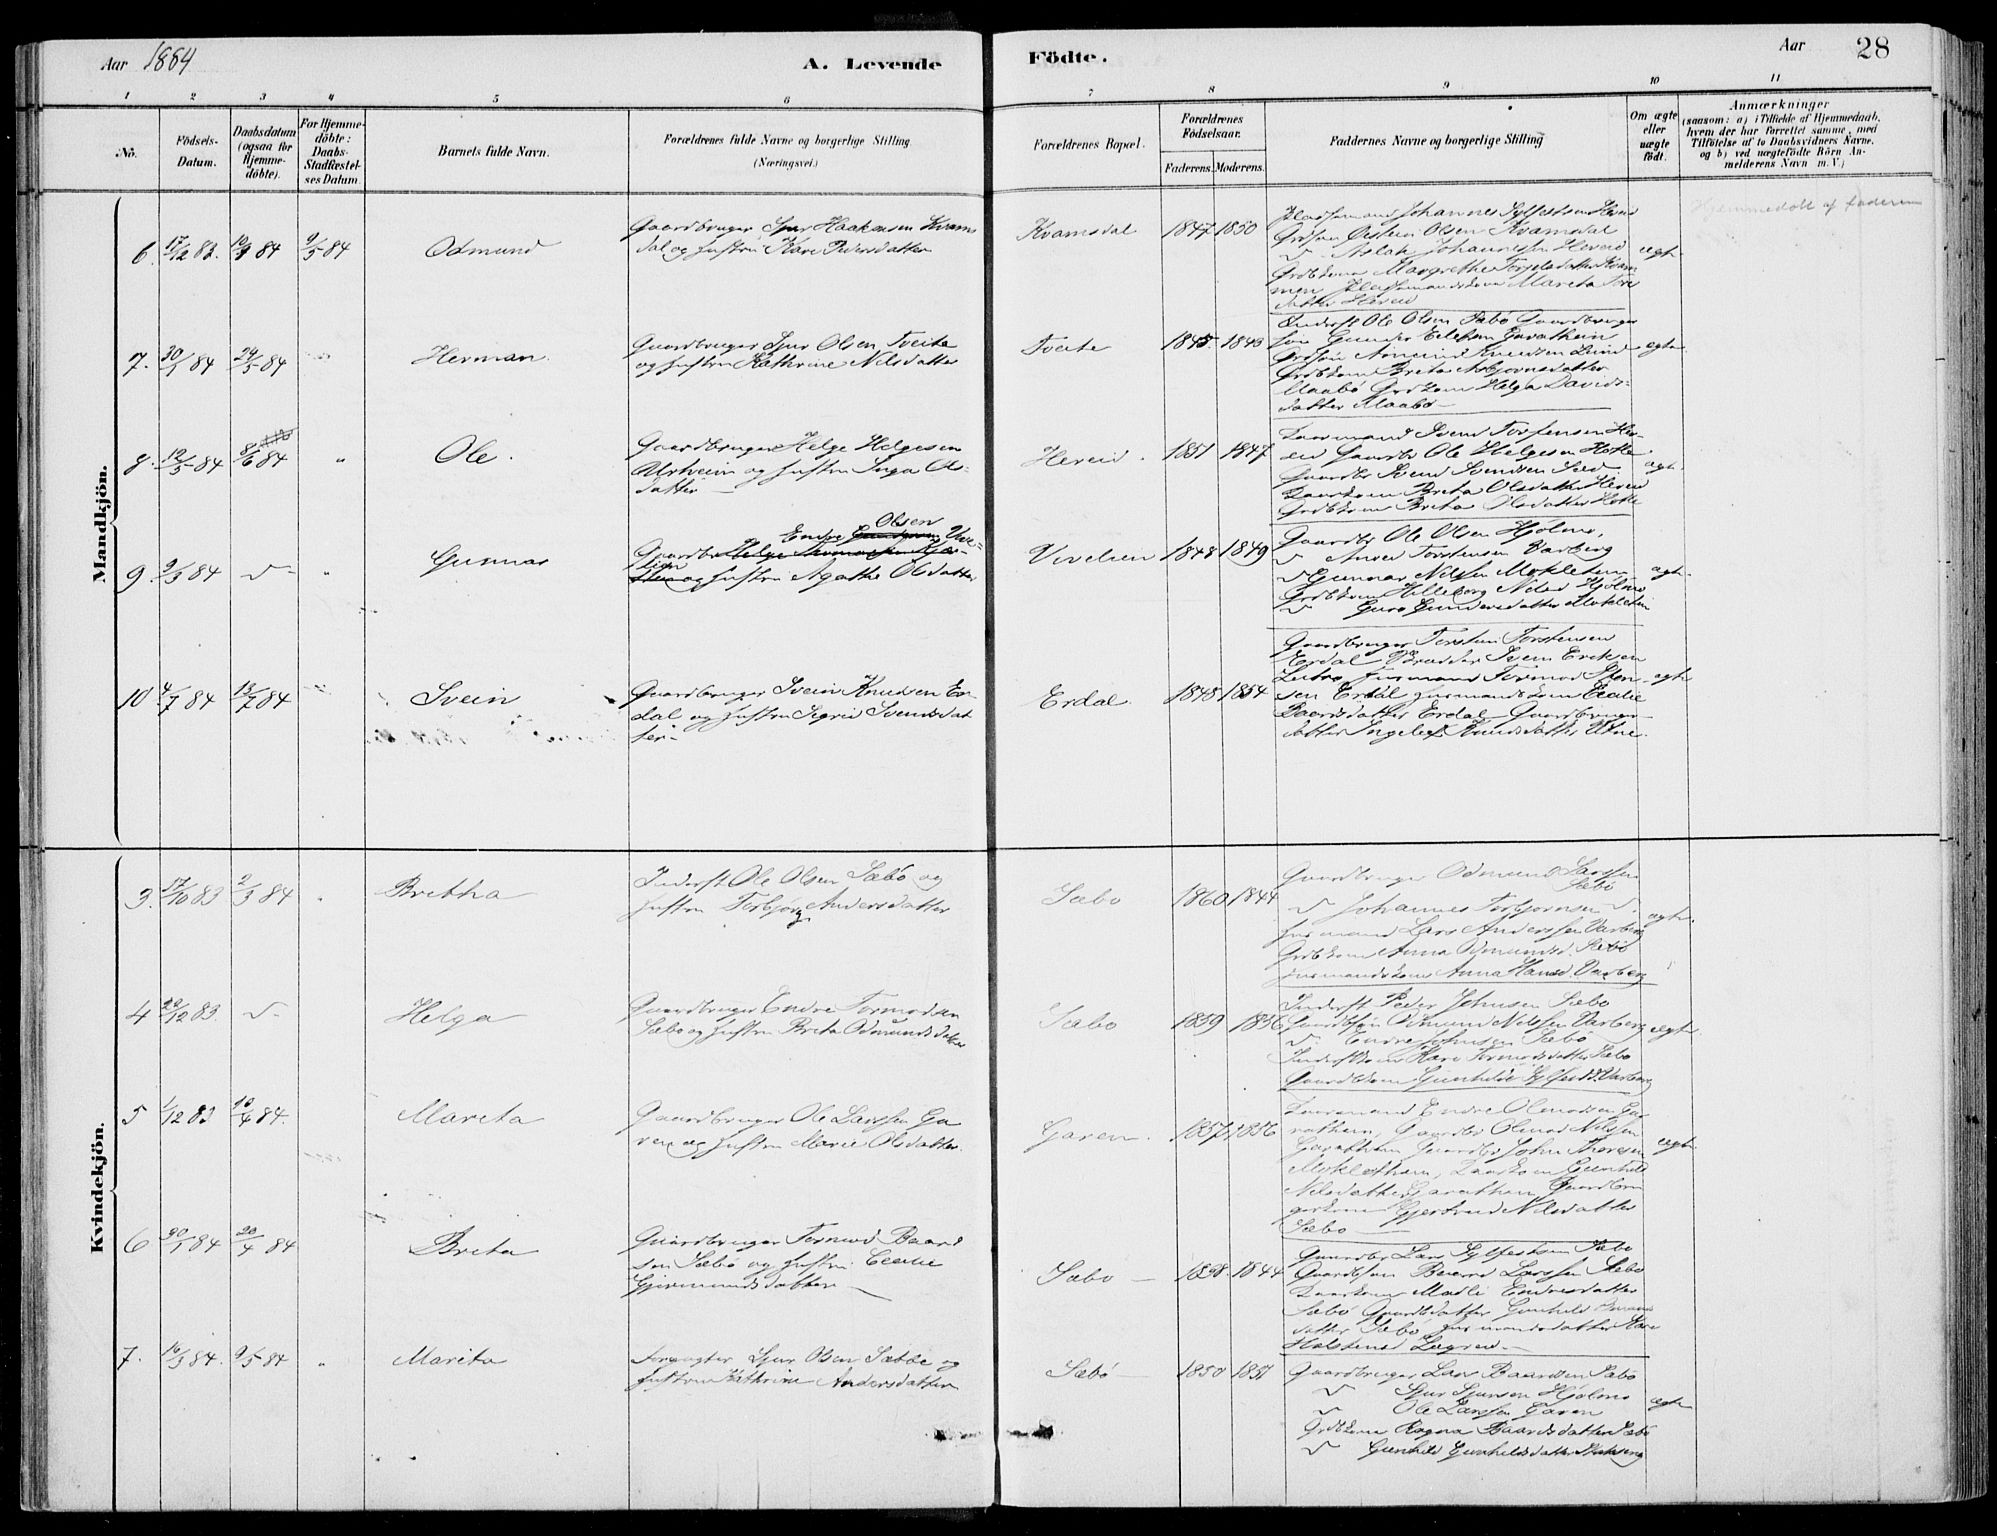 Aar 1884
A. Levende
Födte.
Aar
28
1 2 3 4 5 6 7 8 9 10 11
No.
Födsels-
Datum.
Daabsdatum
(ogsaa for
Hjemme-
döbte).
For Hjemme-
döbte:
Daabs-
Stadfæstel-
ses Datum.
Barnets fulde Navn.
Forældrenes fulde Navne og borgerlige Stilling
(Næringsvei.)
Forældrenes Bopæl.
Forældrenes
Födselsaar.
Faderens. Moderens.
Faddernes Navne og borgerlige Stilling
Om ægte
eller
uægte
födt.
Anmærkninger
(saasom: a) i Tilfælde af Hjemmedaab,
hvem der har forrettet samme, med
Tilföielse af to Daabsvidners Navne,
og b) ved uægtefödte Börn An-
melderens Navn m. V.)
Mandkjön.
6. 17/12 83. 10/3 84 9/5 84
Odmund
Gaardbruger Sjur Haakensen Kvams
dal og Hustru Kari Pedersdatter
Kvamsdal
1847 1850
Johannes Sylfestsen Hereid
Grdsøn Østein Olsen Kvamsdal
Aslak Johannessen Hereid
Grdbkona Margrethe Torgilsdatter Kvam
men Pladsemandskona Marita Tore
datter Hereid
ægte
Hjemmedøbt af faderen
7. 30/1 84 29/5 84
Herman.
Gaardbruger Sjur Olsen Tveite
og Hustru Kathrine Nilsdatter
Tveite
1845. 1843
Inderst Ole Olsen Sæbö Gaardbruger
søn Gunnar Eilefsen Garathun
Grdsøn Amund Knudsen Lund
Grdbkone Brita Asbjørnsdatter
Maabö Grdkone Helga Davids-
datter Maabö
ægte
8. 12/5 84 8/6 84 "
Ole.
Gaardbruger Helge Helgesen
Urheim og Hustru Inga Ols-
datter
Hereid.
1851 1847
Svend Torfensen Her-
eid Gaardbr Ole Helgesen Hotle
Gaardbr Svend Svendsen Sed
Brita Olsdatter Hereid
Grdbkone Brita Olsdatter Hotle
ægte
9. 9/3 84 "
Gunnar
Olsen
Endre Vive-
Gaardbr
lien
og Hustru Agathe Olsdatter
Vivelien
1848 1849
Gaardbr Ole Olsen Hjølmo,
Torstensen Varberg
Gunnar Nilsen Mokletun
Grdbkone Hilleborg Nilsd Hjölmo
Guro Gundersdatter Mokletun
ægte
10. 4/7 84 13/7 84
Svein
Gaardbruger Svein Knudsen Er-
dal og Hustru Sigrid Svendsdat
ter.
Erdal.
1845 1854
Gaardbruger Torstein Torstensen
Erdal Svein Eriksen
Tormod Sten-
sen Erdal Husmandskone Cecilie
Baardsdatter Erdal Gaardbruger
datter Ingeleif Knudsdatter Utne.
ægte
Kvindekjön.
3. 17/10 83 2/3 84
Bretha
Inderst Ole Olsen Sæbö og
Hustru Torbjørg Andersdatter
Sæbo
1860 1844
Gaardbruger Odmund Larssen
Sæbö
Johannes Torbjørnsen
Husmand Lars Anderssen Varberg
Grdbkone Anna Odmundsd. Sæbö
Husmandskone Anna Hansd. Varberg
ægte
4 23/12 83.
Helga
Gaardbruger Endre Tormodsen
Sæbo og Hustru Brita Odmundsdatter
Sæbo
1859 1856
Inderst Peder Johnsen Sæbo
Gaardbsøn Odmund Nilssen Varberg
Endre Johnsen Sæbö
Inderstkone Kari Tormodsdatter Sæbo
Gaardbkone Gunhilde Sylfestd. Varberg
ægte
5 1/12 83 10/4 84.
Mareta
Gaardbruger Ole Larssen Ga
ren og Hustru Marie Olsdatter.
Garen.
1857 1856
Endre Olmodsen Ga-
rathun, Gaardbr Olmod Nilssen
Garathun Gaardbr John Thoresen
Moklethun, Gunhild
Nilsdatter Garathun Gaardbru
gerkone Gjertrud Nilsdatter
Sæbo
ægte
6 30/1 84 20/4 84
Brita
Gaardbruger Tormod Baard
sen Sæbö og Hustru Cecilie
Gjermundsdatter
Sæbo
1838. 1844
Gaardbr Lars Sylfestsen Sæbo
Gaardbsøn Larssen Sæbo
Madli Endresdatter
Sæbö Gaardbdatter Gunhild
datter Sæbö, Husmandsdatter Kari
Holstensd Lægreid
7. 16/3 84. 9/5 84 "
Marita
Forpagter Sjur Olsen Sæbbe og
Hustru Kathrine Andersdatter
Sæbö
1850 1851
Gaardbruger Lars Baardsen Sæbö
Sjur Sjursen Hjølmo
Ole Larssen Garen
Grdbkone Ragna Baardsdatter Sæbö
Gunhild Gunhildsdatter
ægte